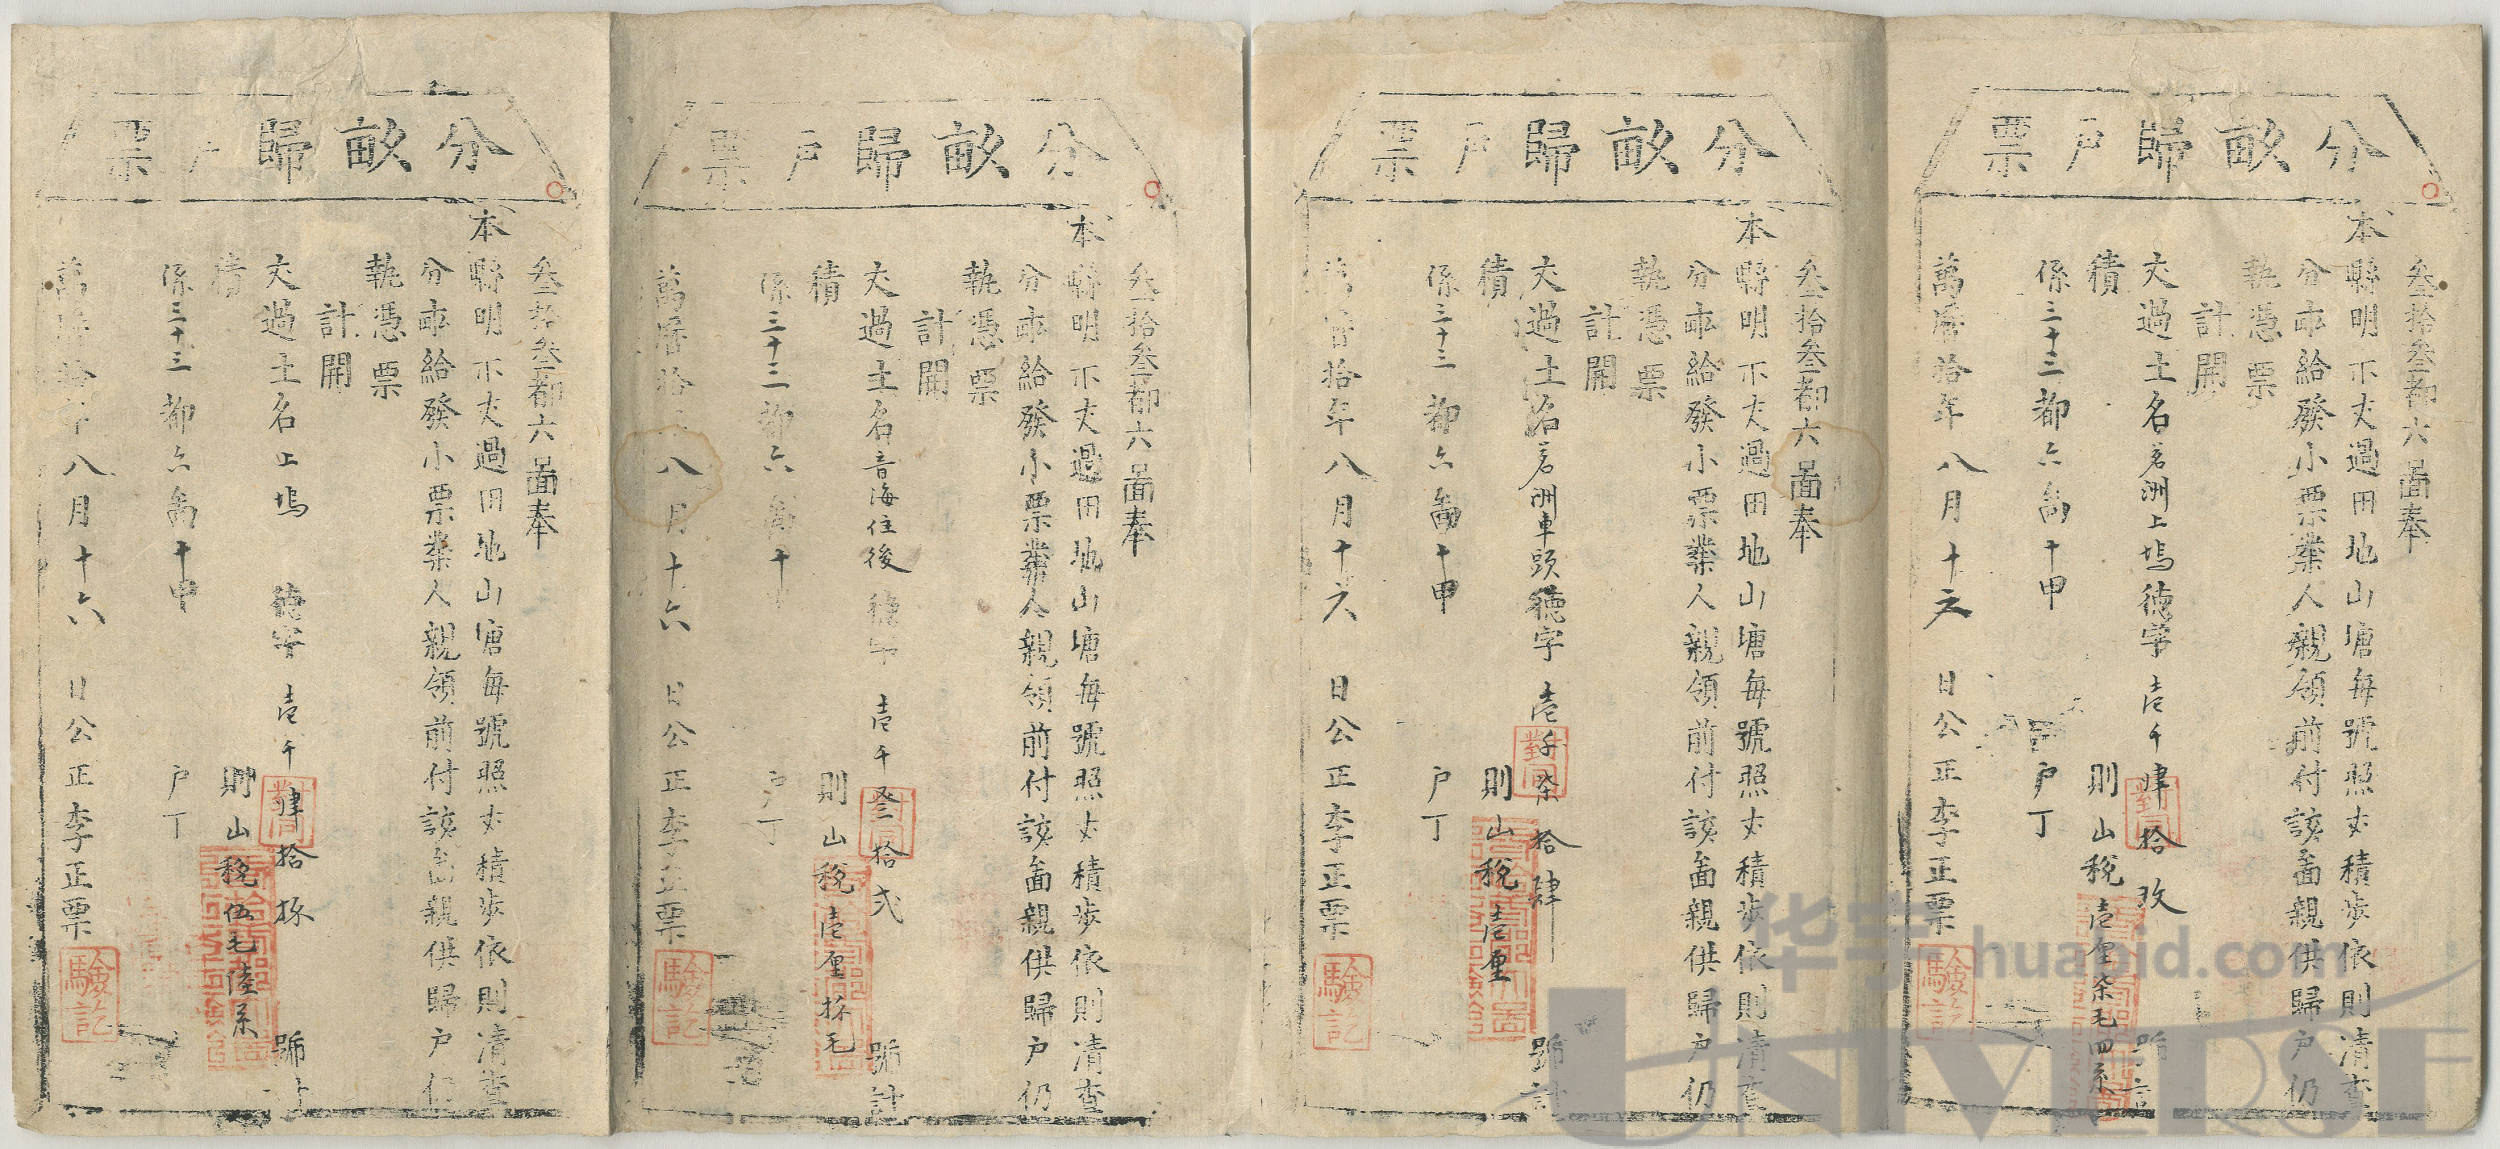 分畝歸戶票
叁拾叁都六啚奉
本縣明示丈過田地山塘每號照丈積步依則清查
分畝給發小票業人親領前付該啚親供歸户仍
執憑票
計開
丈過土名茗洲上塢德字壹千肆拾玫號計
積 則山稅壹厘柒毛四系
係三十三都六啚十甲 户丁
萬曆拾年八月十六日公正李正票
驗訖
對同
分畝歸戶票
叁拾叁都六啚奉
本縣明示丈過田地山塘每號照丈積步依則清查
分畝給發小票業人親領前付該啚親供歸户仍
執憑票
計開
丈過土名茗洲車頭德字壹千柒拾肆號計
積 則山稅壹厘
係三十三都六啚十甲 户丁
萬曆拾年八月十六日公正李正票
驗訖
對同
分畝歸戶票
叁拾叁都六啚奉
本縣明示丈過田地山塘每號照丈積步依則清查
分畝給發小票業人親領前付該啚親供歸户仍
執憑票
計開
丈過土名音海住後德字壹千叁拾弍號計
積 則山稅壹厘捌毛
係三十三都六啚十甲 户丁
萬曆拾年八月十六日公正李正票
驗訖
對同
分畝歸戶票
叁拾叁都六啚奉
本縣明示丈過田地山塘每號照丈積步依則清查
分畝給發小票業人親領前付該啚親供歸户仍
執憑票
計開
丈過土名上塢德字壹千肆拾捌號計
積 則山稅伍毛陸系
係三十三都六啚十甲 户丁
萬曆拾年八月十六日公正李正票
驗訖
對同
华宇 huabid.com
UNIVERSE